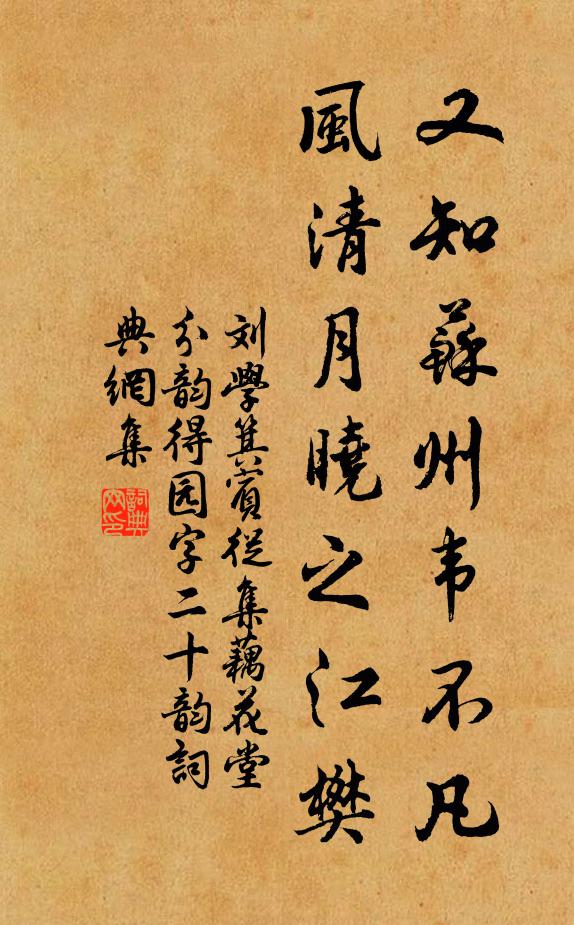 又知蘇州韦不凡
風清月曉之江樊
刘學箕賓從集藕花堂
分韵得园字二十韵詞
典網集
詞典網印